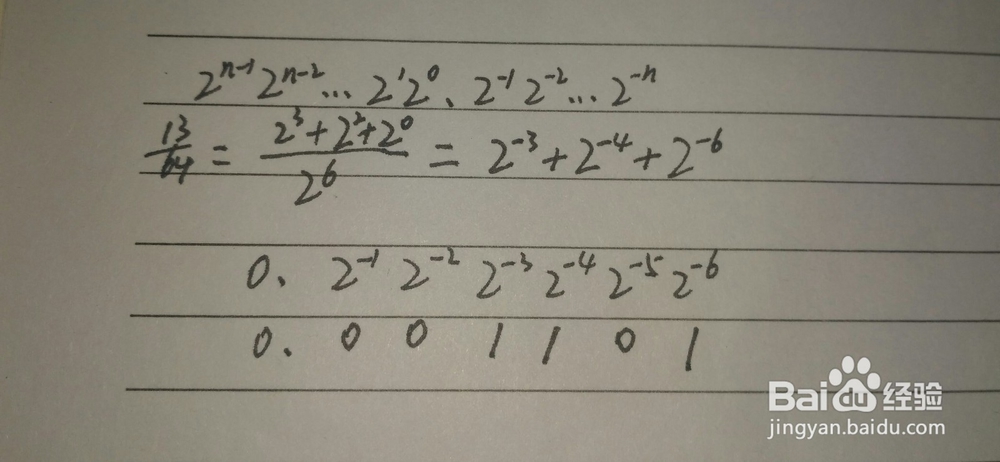 2ⁿ⁻¹ 2ⁿ⁻² ... 2¹ 2⁰ . 2⁻¹ 2⁻² ... 2⁻ⁿ
13/64 = (2³+2²+2⁰)/2⁶ = 2⁻³+2⁻⁴+2⁻⁶
0. 2⁻¹ 2⁻² 2⁻³ 2⁻⁴ 2⁻⁵ 2⁻⁶
0. 0 0 1 1 0 1
Baidu经验
jingyan.baidu.com